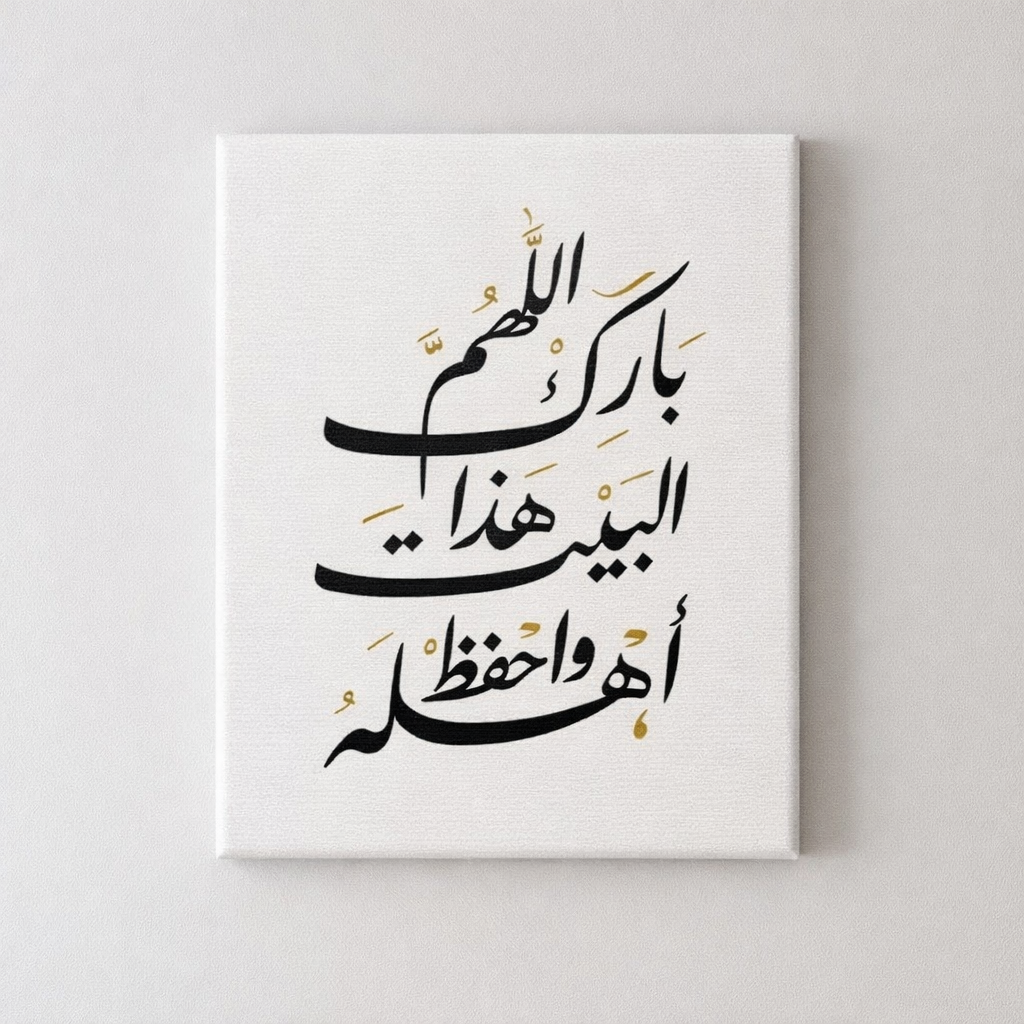 اللَّهُمَّ بَارِكْ
هَذَا الْبَيْتَ
وَاحْفَظْ أَهْلَهُ